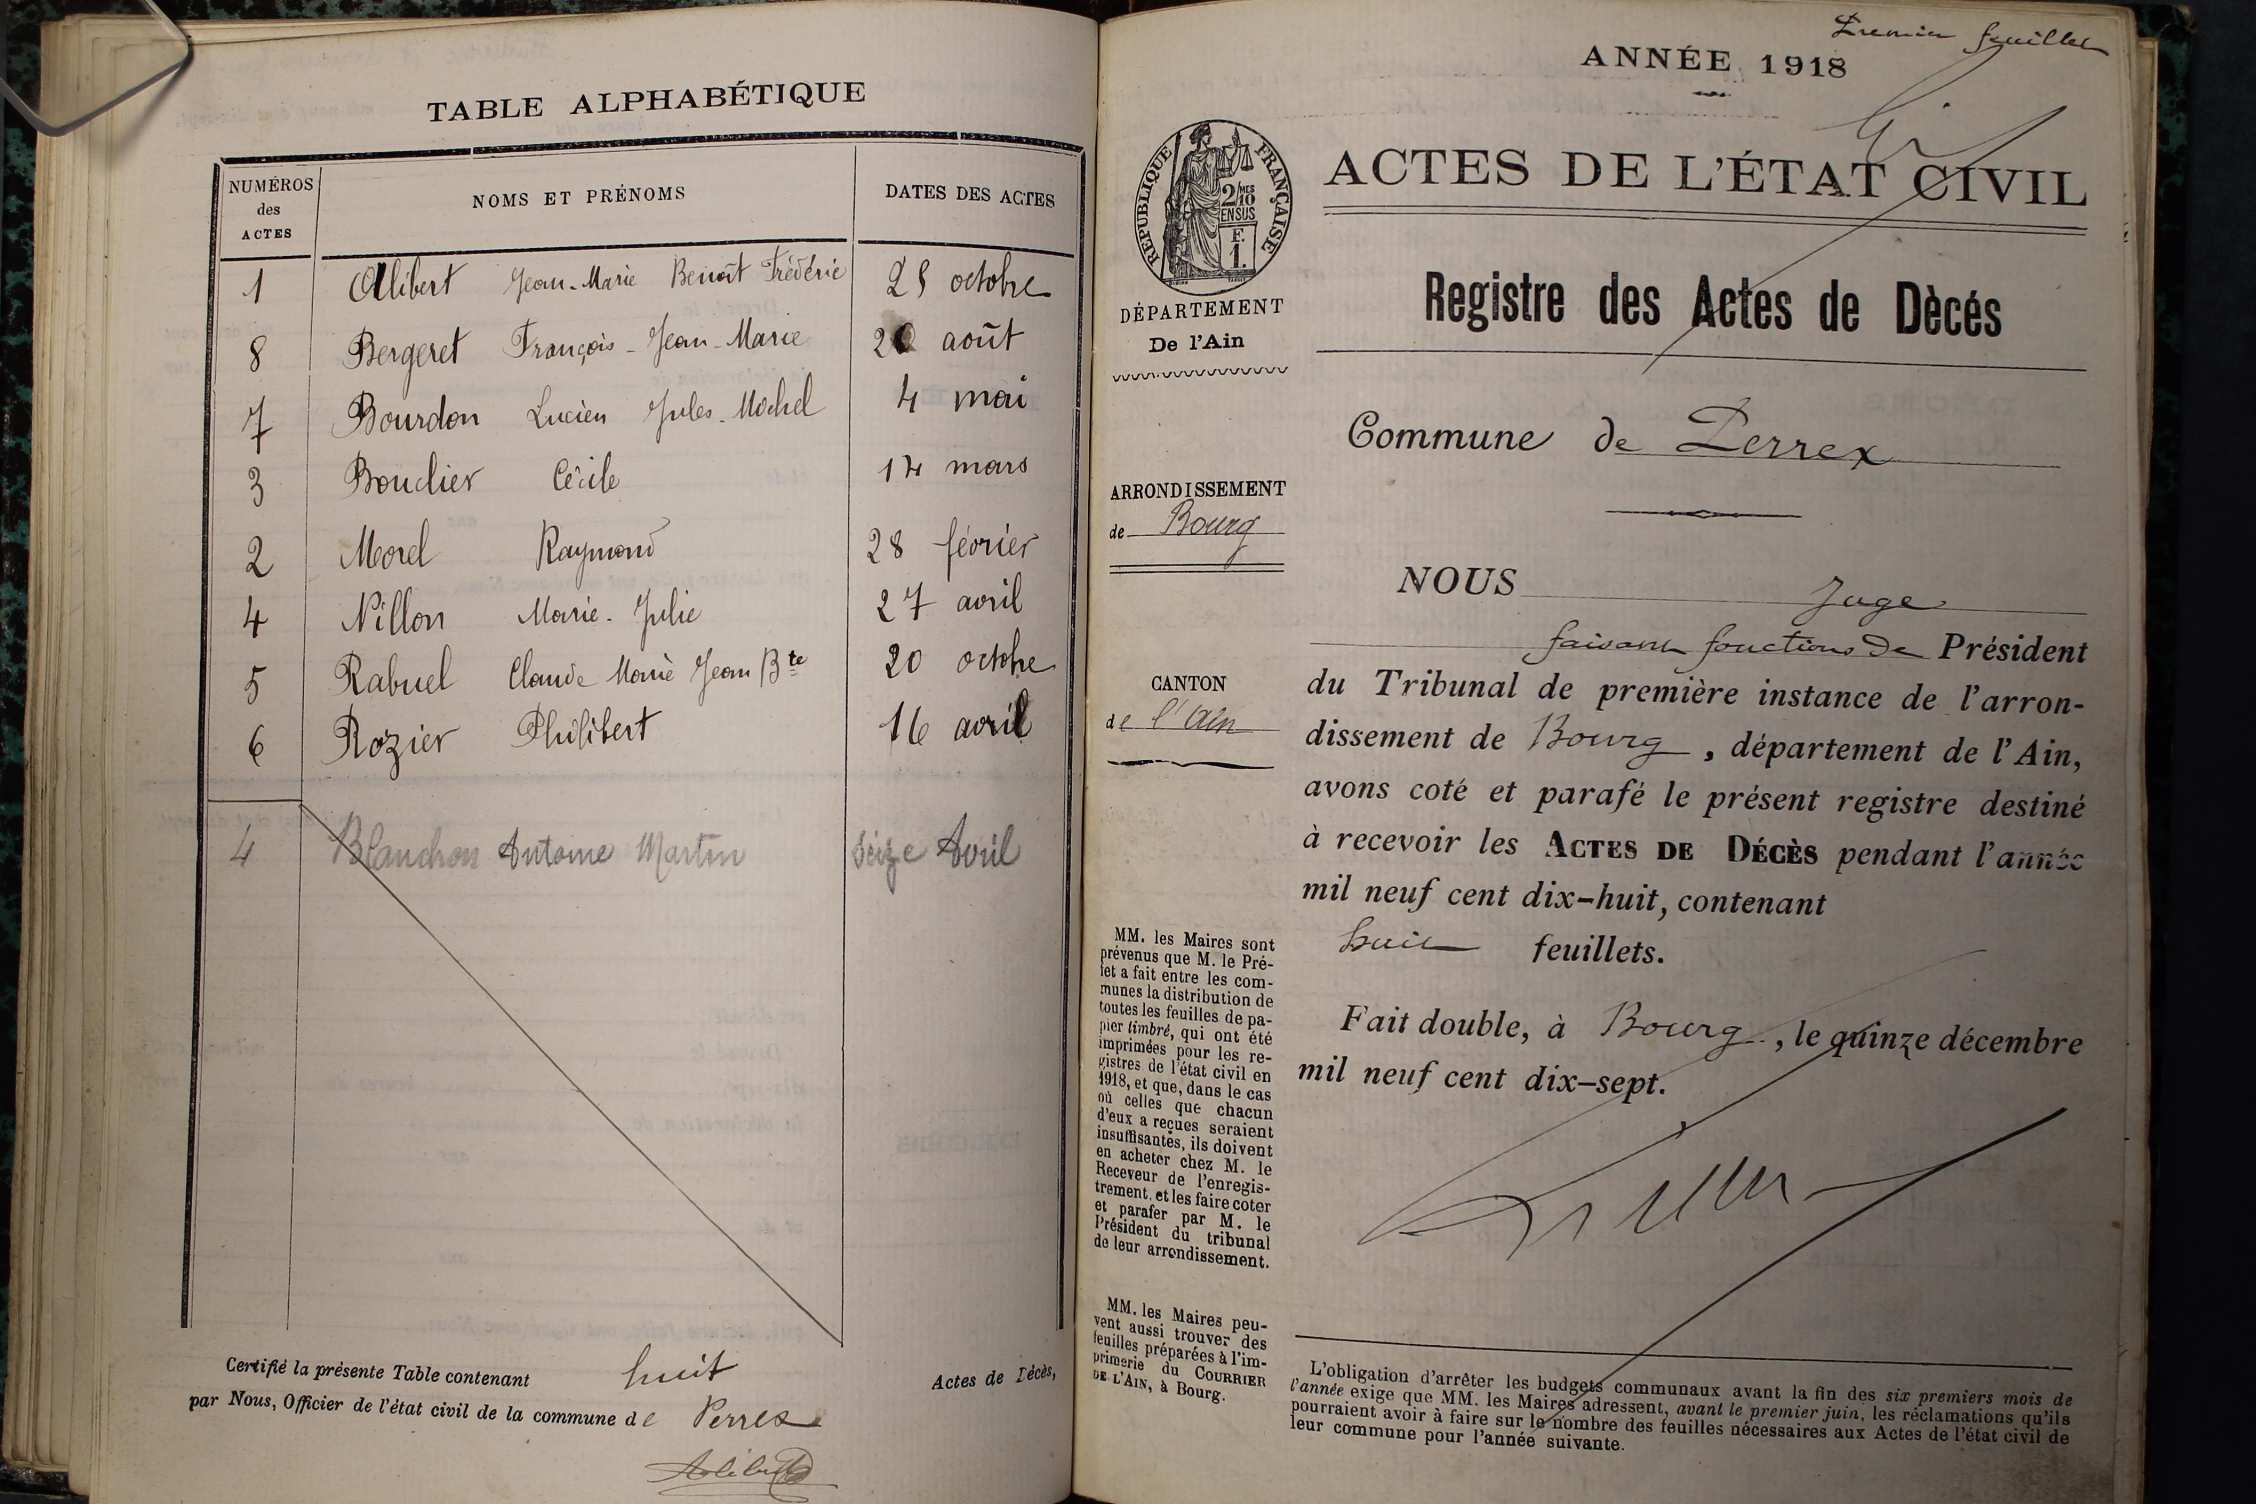 TABLE ALPHABÉTIQUE
NUMÉROS des ACTES
NOMS ET PRÉNOMS
DATES DES ACTES
1 Alibert Jean-Marie Benoît Frédéric 25 octobre
8 Bergeret François-Jean-Marie 20 août
7 Bourdon Lucien Jules-Michel 4 mai
3 Bouclier Cécile 14 mars
2 Morel Raymond 28 février
4 Nillon Marie-Julie 27 avril
5 Rabuel Claude Marie Jean Bte 20 octobre
6 Rozier Philibert 16 avril
4 Blanchon Antoine Martin Seize Avril
Certifié la présente Table contenant huit Actes de Décès,
par Nous, Officier de l'état civil de la commune de Perrex
Alibert
Premier feuillet
ANNÉE 1918
RÉPUBLIQUE FRANÇAISE
2/10 MES
EN SUS
F.
1.
ACTES DE L'ÉTAT CIVIL
DÉPARTEMENT
De l'Ain
Registre des Actes de Dècés
Commune de Perrex
ARRONDISSEMENT
de Bourg
CANTON
de l'Ain
NOUS Juge
faisant fonctions de Président
du Tribunal de première instance de l'arron-
dissement de Bourg, département de l'Ain,
avons coté et parafé le présent registre destiné
à recevoir les ACTES DE DÉCÈS pendant l'année
mil neuf cent dix-huit, contenant
huit feuillets.
Fait double, à Bourg, le quinze décembre
mil neuf cent dix-sept.
MM. les Maires sont
prévenus que M. le Pré-
fet a fait entre les com-
munes la distribution de
toutes les feuilles de pa-
pier timbré, qui ont été
imprimées pour les re-
gistres de l'état civil en
1918, et que, dans le cas
où celles que chacun
d'eux a reçues seraient
insuffisantes, ils doivent
en acheter chez M. le
Receveur de l'enregis-
trement, et les faire coter
et parafer par M. le
Président du tribunal
de leur arrondissement.
MM. les Maires peu-
vent aussi trouver des
feuilles préparées à l'im-
primerie du COURRIER
DE L'AIN, à Bourg.
L'obligation d'arrêter les budgets communaux avant la fin des six premiers mois de
l'année exige que MM. les Maires adressent, avant le premier juin, les réclamations qu'ils
pourraient avoir à faire sur le nombre des feuilles nécessaires aux Actes de l'état civil de
leur commune pour l'année suivante.